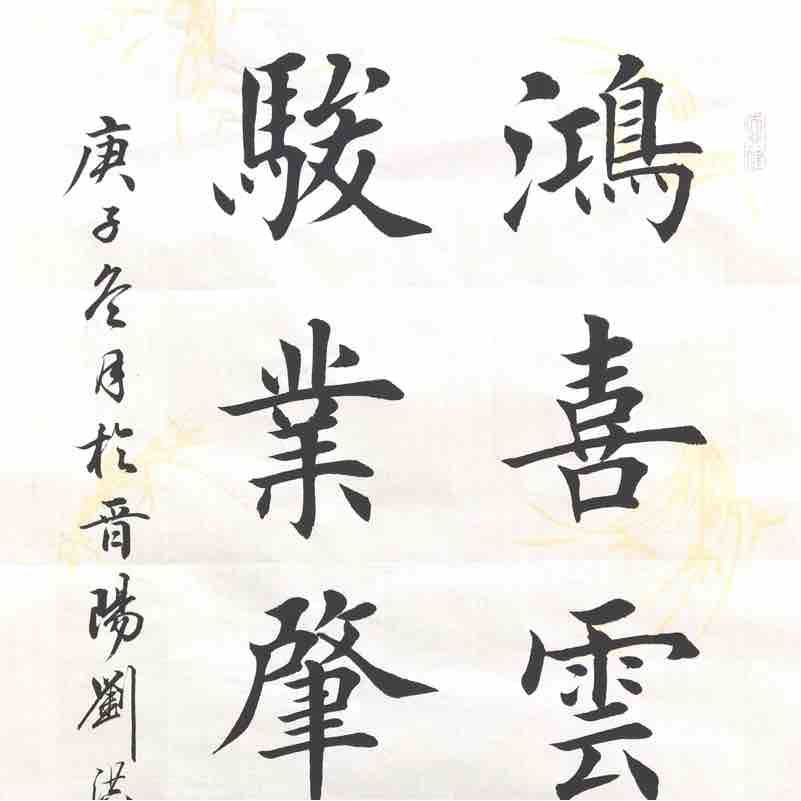 鴻喜雲
駿業肇
庚子冬月於晋陽劉洪